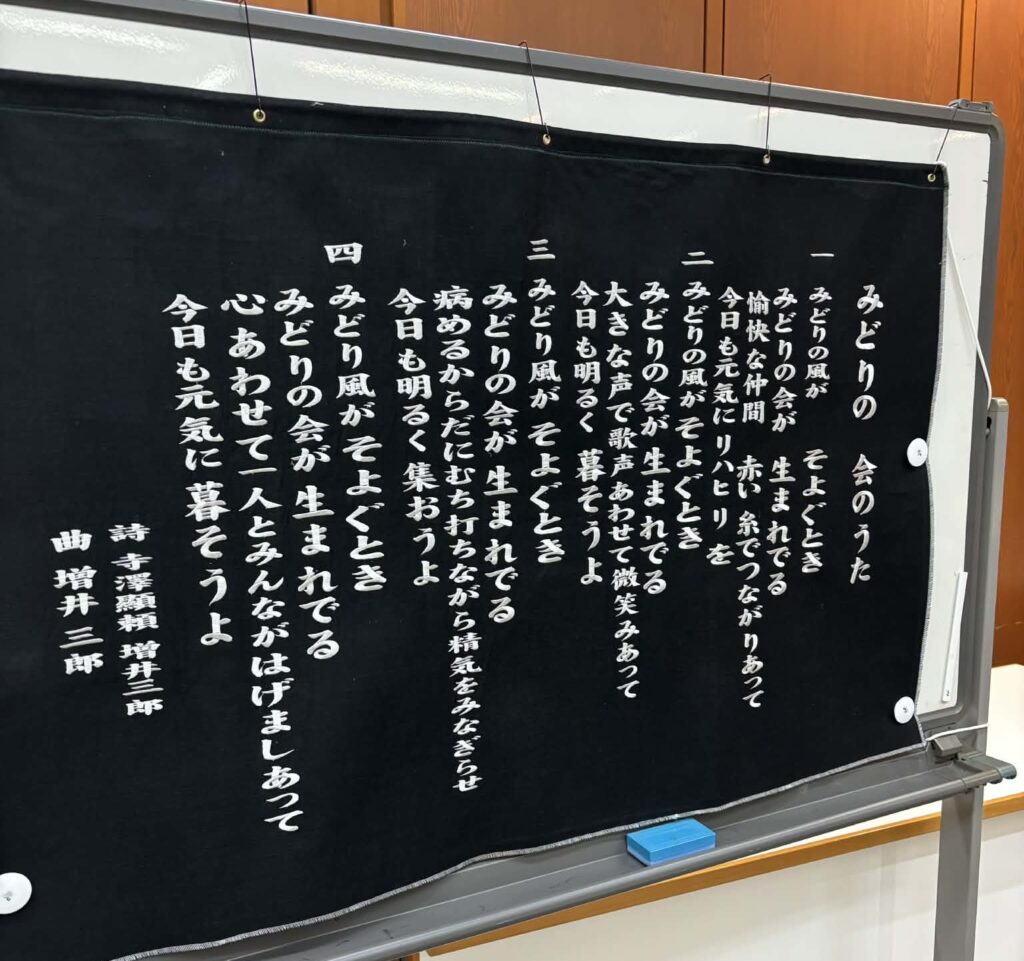 みどりの 会のうた
一 みどりの風が そよぐとき
みどりの会が 生まれでる
愉快な仲間 赤い糸でつながりあって
今日も元気に リハビリを
二 みどりの風が そよぐとき
みどりの会が 生まれでる
大きな声で歌声あわせて微笑みあって
今日も明るく 暮そうよ
三 みどり風が そよぐとき
みどりの会が 生まれでる
病めるからだにむち打ちながら精気をみなぎらせ
今日も明るく 集おうよ
四 みどり風が そよぐとき
みどりの会が 生まれでる
心あわせて一人とみんながはげましあって
今日も元気に 暮そうよ
詩 寺澤顯頼 増井三郎
曲 増井三郎